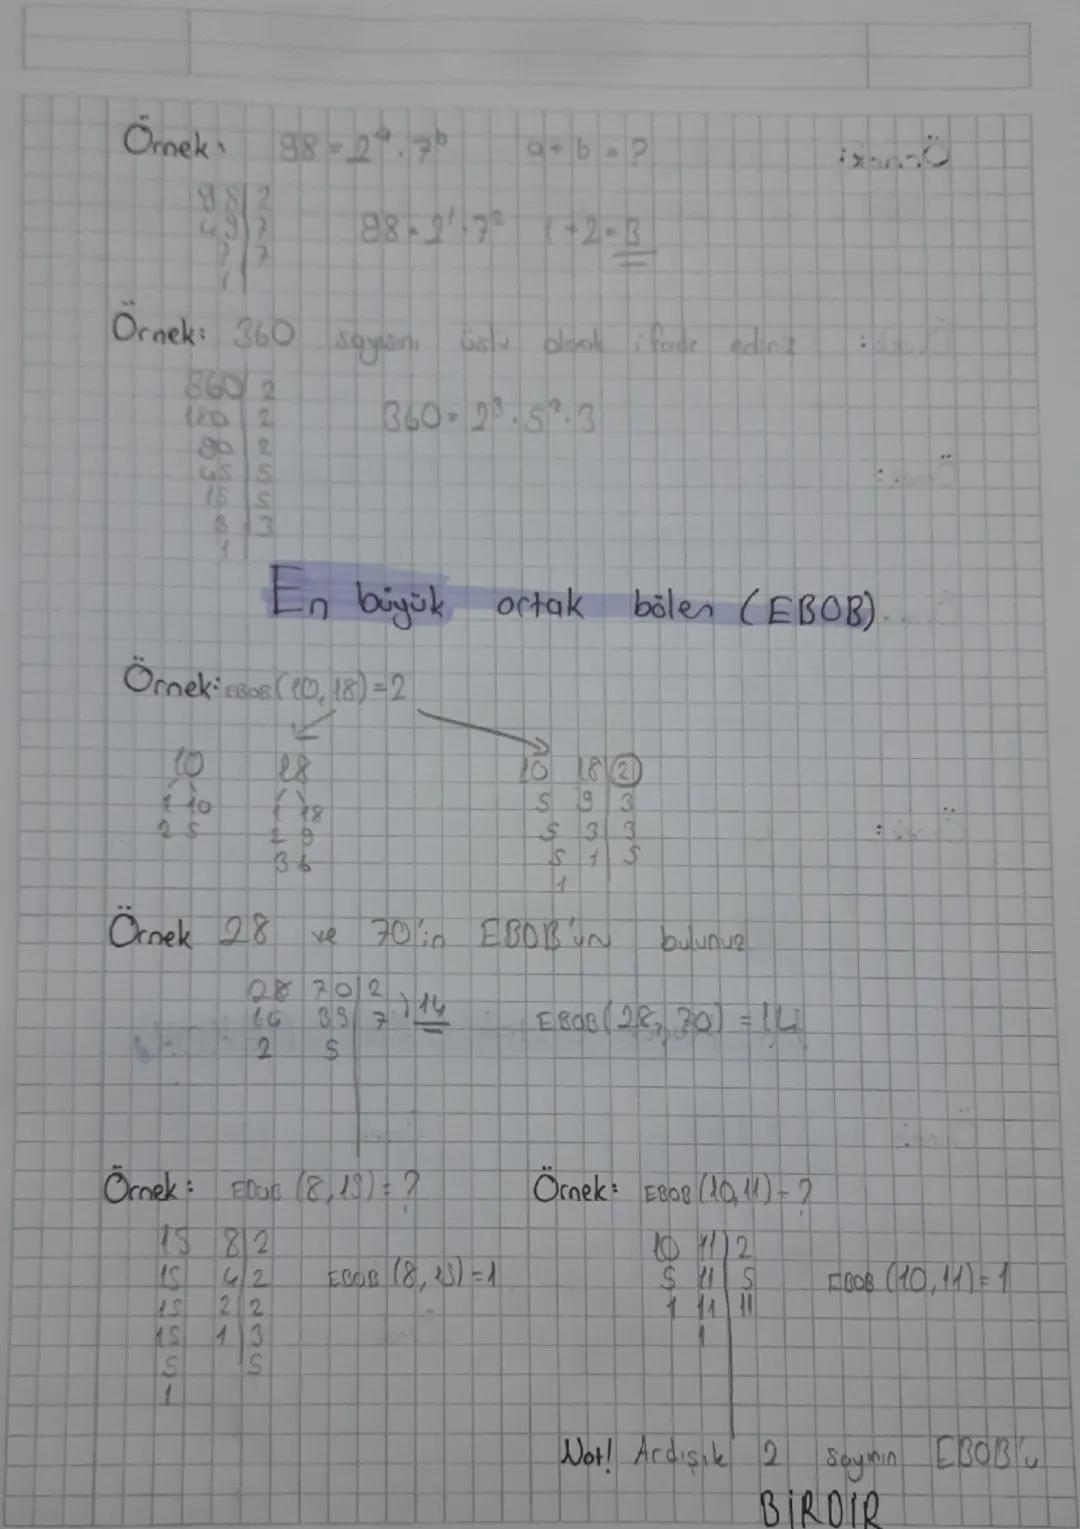 Örnek: 98 = 2ᵃ . 7ᵇ a + b = ?
98 | 2
49 | 7 98 = 2¹ . 7² 1 + 2 = 3
7 | 7
1
Örnek: 360 sayısını üslü olarak ifade ediniz
360 | 2
180 | 2 360 = 2³ . 5² . 3
90 | 2
45 | 5
15 | 5
3 | 3
1
En büyük ortak bölen (EBOB)
Örnek: EBOB (10, 18) = 2
10 18 10 18 | 2
1 10 1 18 5 9 | 3
2 5 2 9 5 3 | 3
3 6 5 1 | 5
1
Örnek 28 ve 70'in EBOB'unu bulunuz
28 70 | 2
14 35 | 7 ) 14 EBOB (28, 70) = 14
2 5
Örnek: EBOB (8, 15) = ? Örnek: EBOB (10, 11) = ?
15 8 | 2 10 11 | 2
15 4 | 2 EBOB (8, 15) = 1 5 11 | 5 EBOB (10, 11) = 1
15 2 | 2 1 11 | 11
15 1 | 3 1
5 | 5
1
Not! Ardışık 2 sayının EBOB'u
BİRDİR